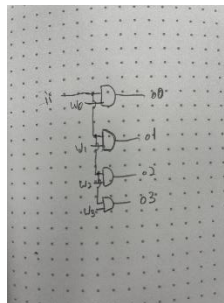 ii
w0
o0
w1
o1
w2
o2
w3
o3